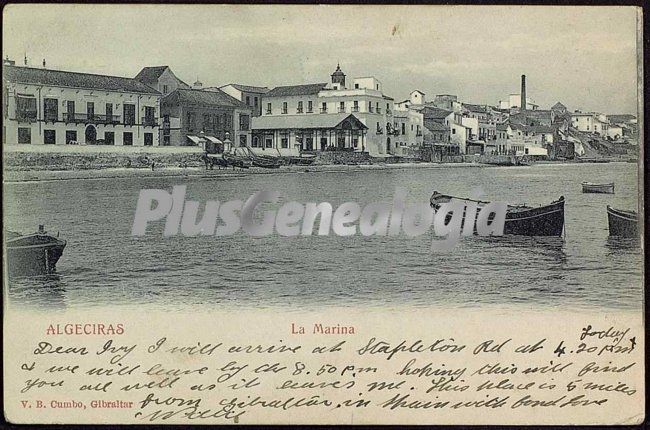 PlusGenealogía
ALGECIRAS
La Marina
Today
Dear Ivy I will arrive at Stapleton Rd at 4.20 PM
& we will leave by the 8.50 pm hoping this will find
you all well as it leaves me. This place is 6 miles
V. B. Cumbo, Gibraltar
from Gibraltar in Spain with fond love
Will